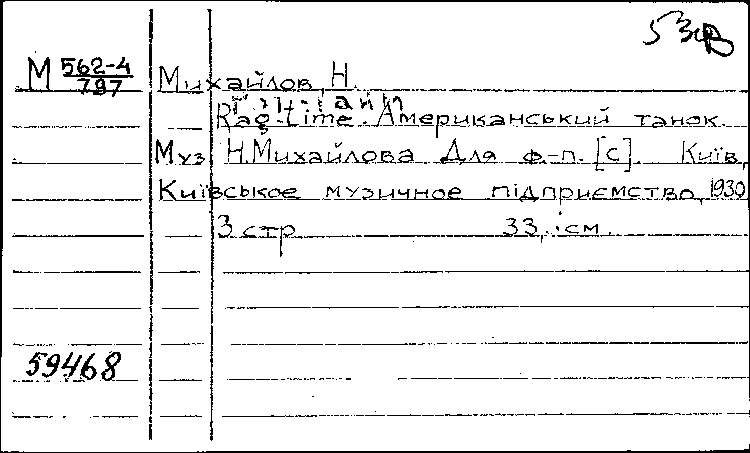 М 562-4/797
Михайлов, Н.
Rag-time. Американський танок.
Муз. Н. Михайлова Для ф.-п. [С]. Київ,
Київськое музичное підприємство, 1930
3 стр 33, ісм.
59468